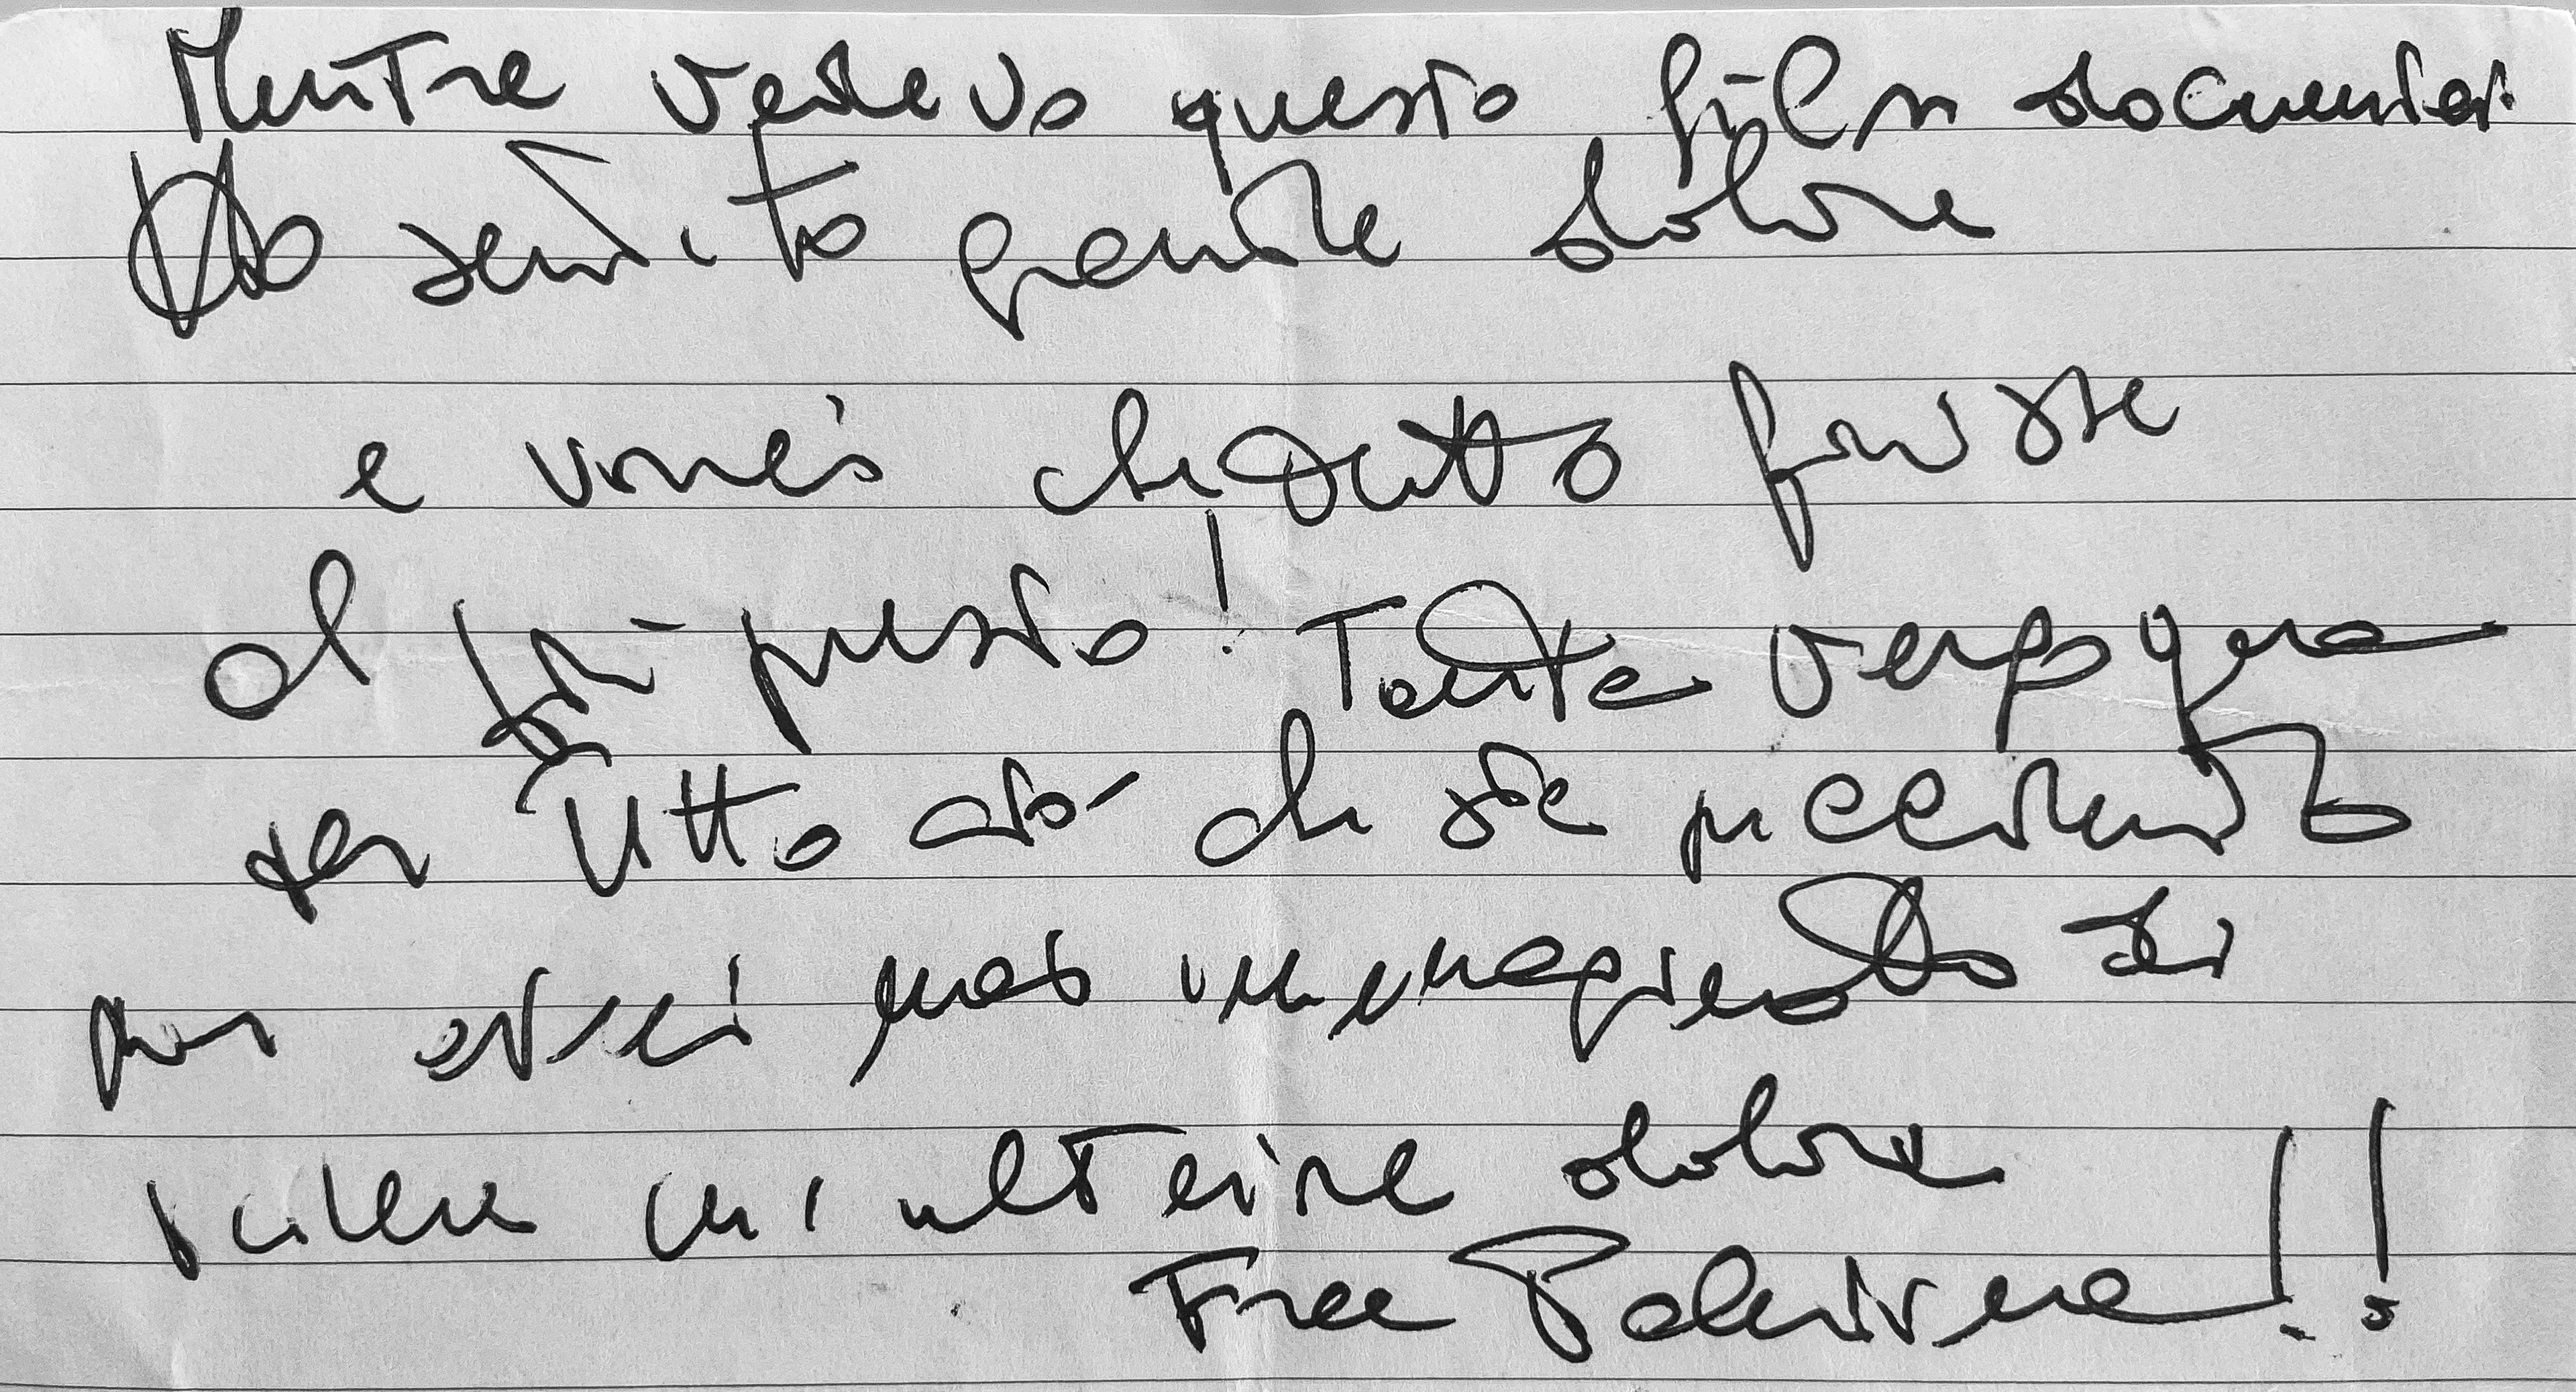 Mentre vedevo questo film documentar.
Ho sentito grande dolore
e vorrei che tutto finisse
al più presto! Tanta vergogna
per tutto ciò che sta succedendo
non avrei mai immaginato di
vivere un ulteriore dolore
Free Palestina!!